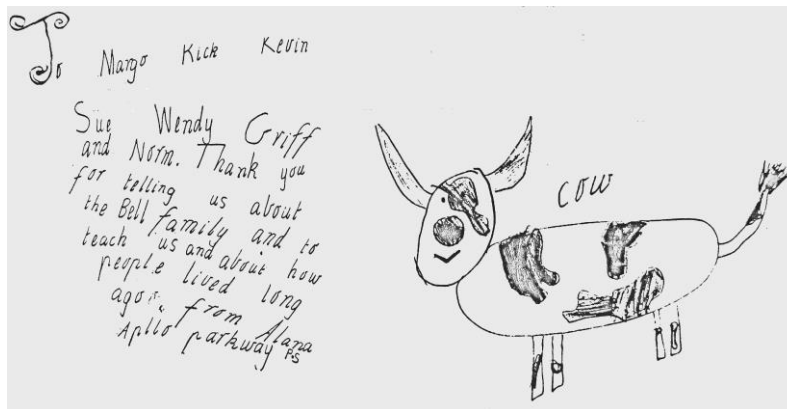 To Margo Kick Kevin
Sue Wendy Griff
and Norm. Thank you
for telling us about
the Bell family and to
teach us and about how
people lived long
ago. from Alana
Apllo parkway PS
cow